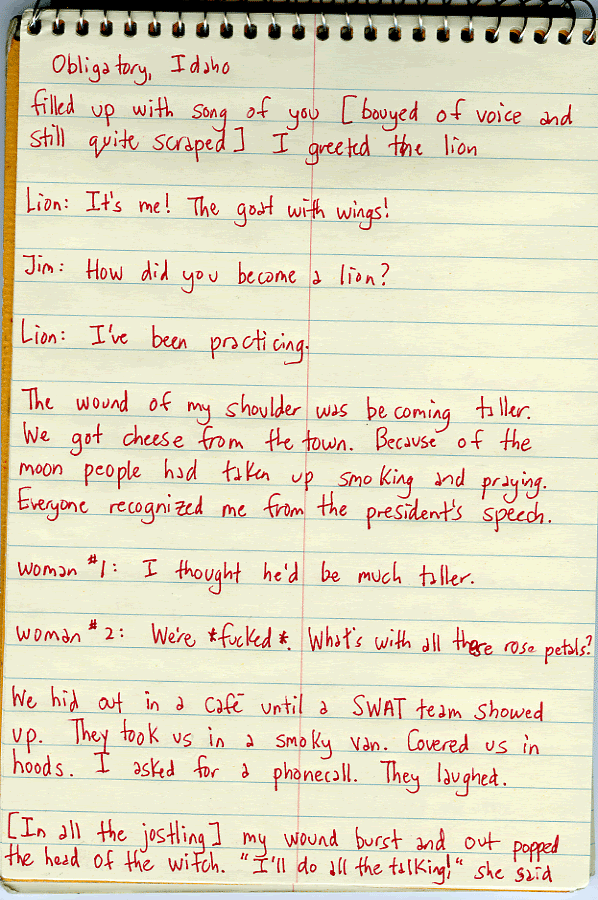 Obligatory, Idaho
filled up with song of you [bouyed of voice and
still quite scraped] I greeted the lion
Lion: It's me! The goat with wings!
Jim: How did you become a lion?
Lion: I've been practicing.
The wound of my shoulder was becoming taller.
We got cheese from the town. Because of the
moon people had taken up smoking and praying.
Everyone recognized me from the president's speech.
woman #1: I thought he'd be much taller.
woman #2: We're *fucked*. What's with all these rose petals?
We hid out in a café until a SWAT team showed
up. They took us in a smoky van. Covered us in
hoods. I asked for a phonecall. They laughed.
[In all the jostling] my wound burst and out popped
the head of the witch. "I'll do all the talking!" she said